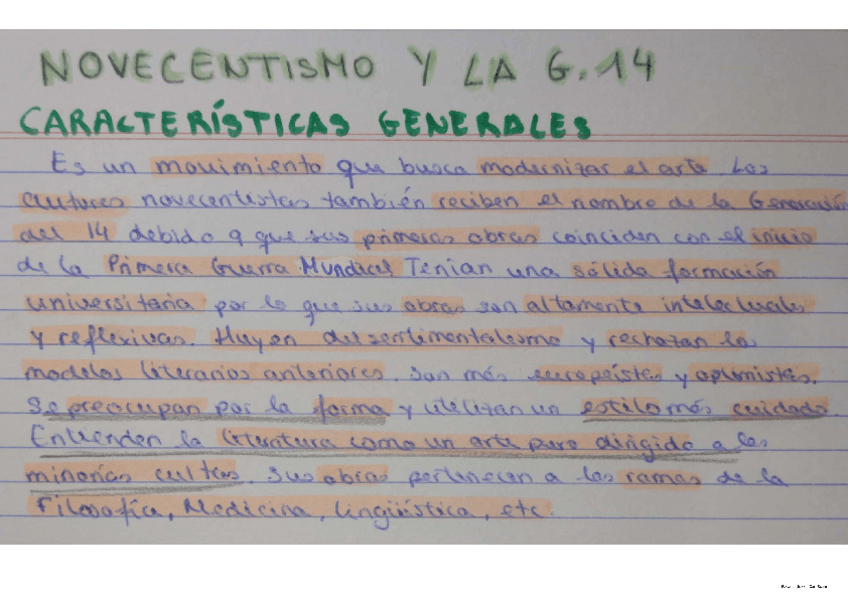 NOVECENTISMO Y LA G.14
CARACTERÍSTICAS GENERALES
Es un movimiento que busca modernizar el arte. Los
autores novecentistas también reciben el nombre de la Generación
del 14 debido a que sus primeras obras coinciden con el inicio
de la Primera Guerra Mundial Tenían una sólida formación
universitaria por lo que sus obras son altamente intelectuales
y reflexivas. Huyen del sentimentalismo y rechazan los
modelos literarios anteriores. Son más europeístas y optimistas.
Se preocupan por la forma y utilizan un estilo más cuidado.
Entienden la literatura como un arte puro dirigido a las
minorías cultas. Sus obras pertenecen a las ramas de la
Filosofía, Medicina, lingüística, etc.